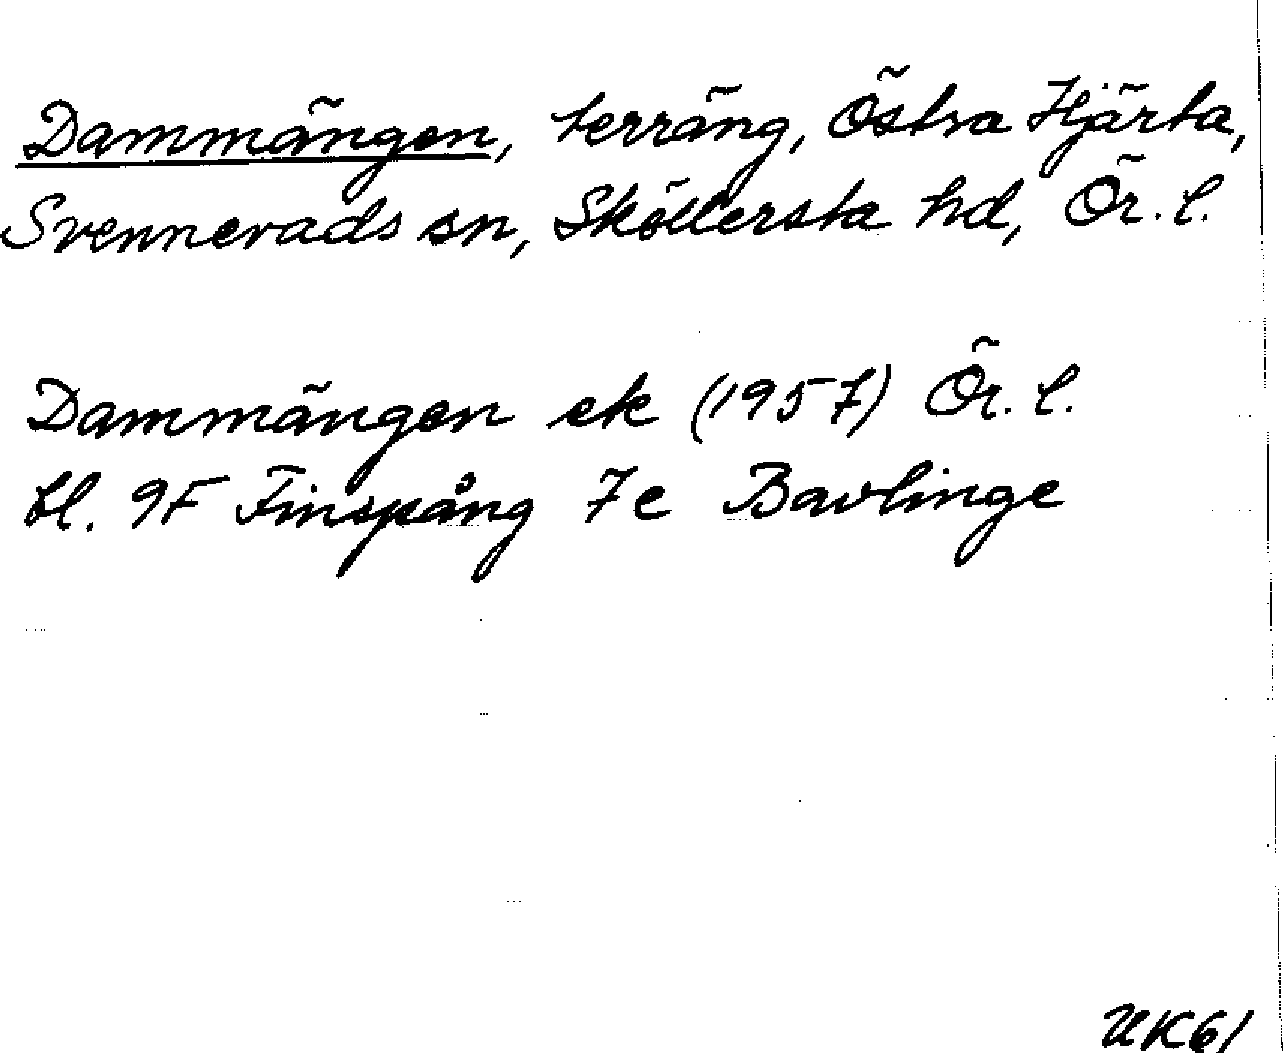 Dammängen, terräng, Östra Hjärta,
Svennevads sn, Sköllersta hd, Ör. l.
Dammängen ek (1957) Ör. l.
bl. 9F Finspång 7e Bavlinge
UK61